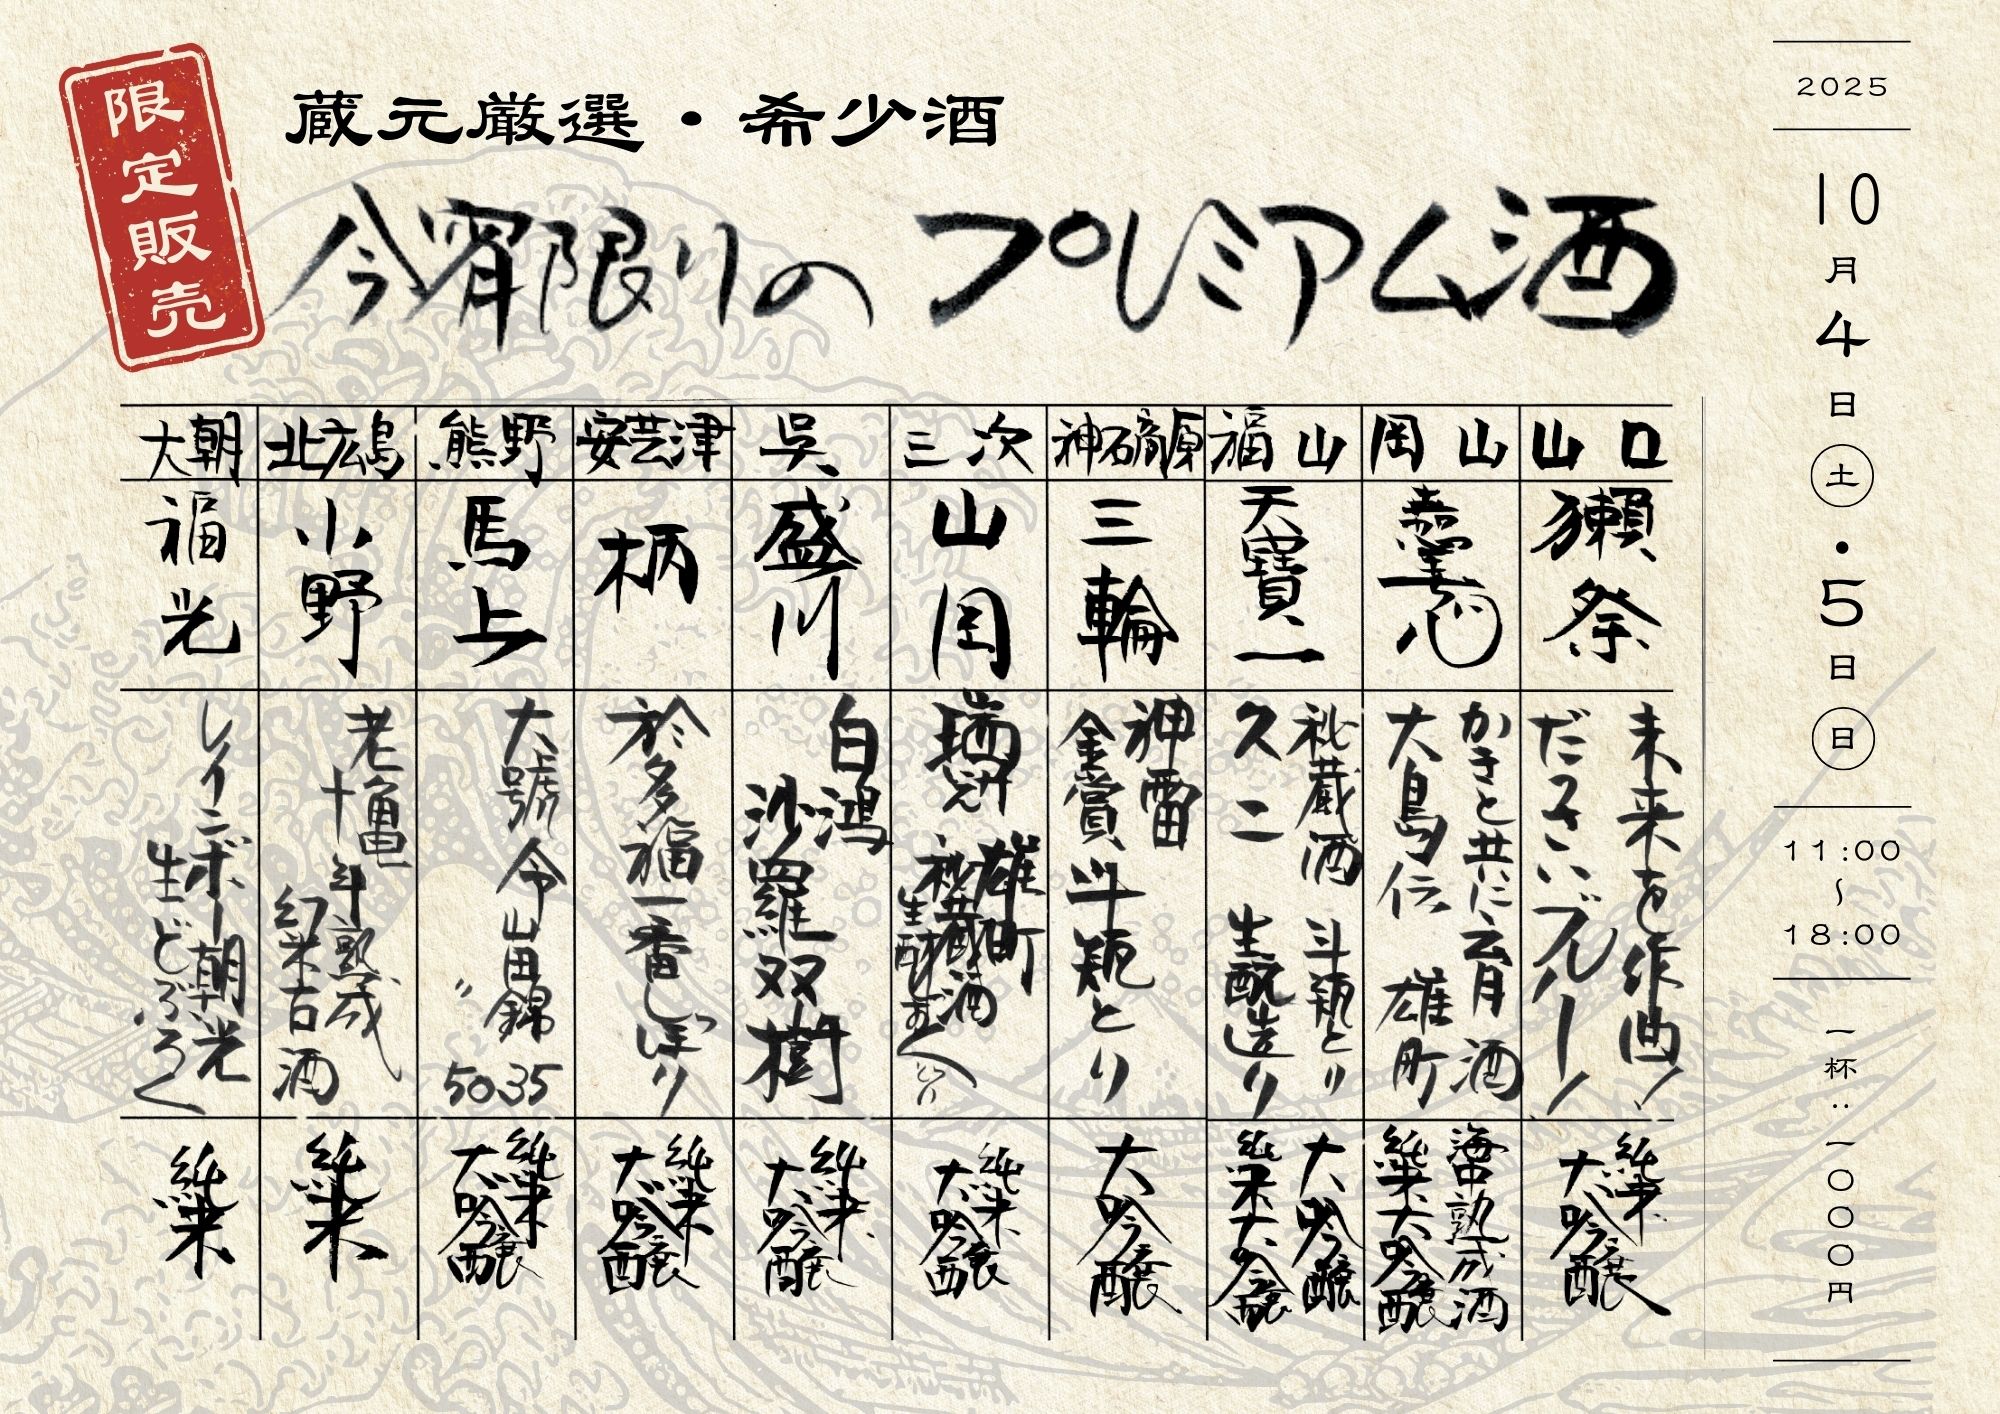 限定販売
蔵元厳選・希少酒
今宵限りの プレミアム酒
2025
10月4日㊏・5日㊐
11:00
〜
18:00
一杯:一〇〇〇円
山口
獺祭
未来を作曲!
だっさいブルー!
純米
大吟醸
岡山
嘉美心
かきと共に育月酒
大島伝 雄町
海中熟成酒
純米大吟醸
福山
天寶一
秘蔵酒 斗瓶とり
久二 生酛造り
大吟醸
純米大吟醸
神石高原
三輪
神雷
金賞 斗瓶とり
大吟醸
三次
山岡
瑞冠
雄町
秘蔵酒
純米
大吟醸
呉
盛川
白鴻
沙羅双樹
純米
大吟醸
安芸津
柄
於多福 一番しぼり
純米
大吟醸
熊野
馬上
大號令 山田錦
35
〃
50
純米
大吟醸
北広島
小野
老亀
十年熟成
幻米古酒
純米
大朝
福光
レインボー朝光
生どぶろく
純米